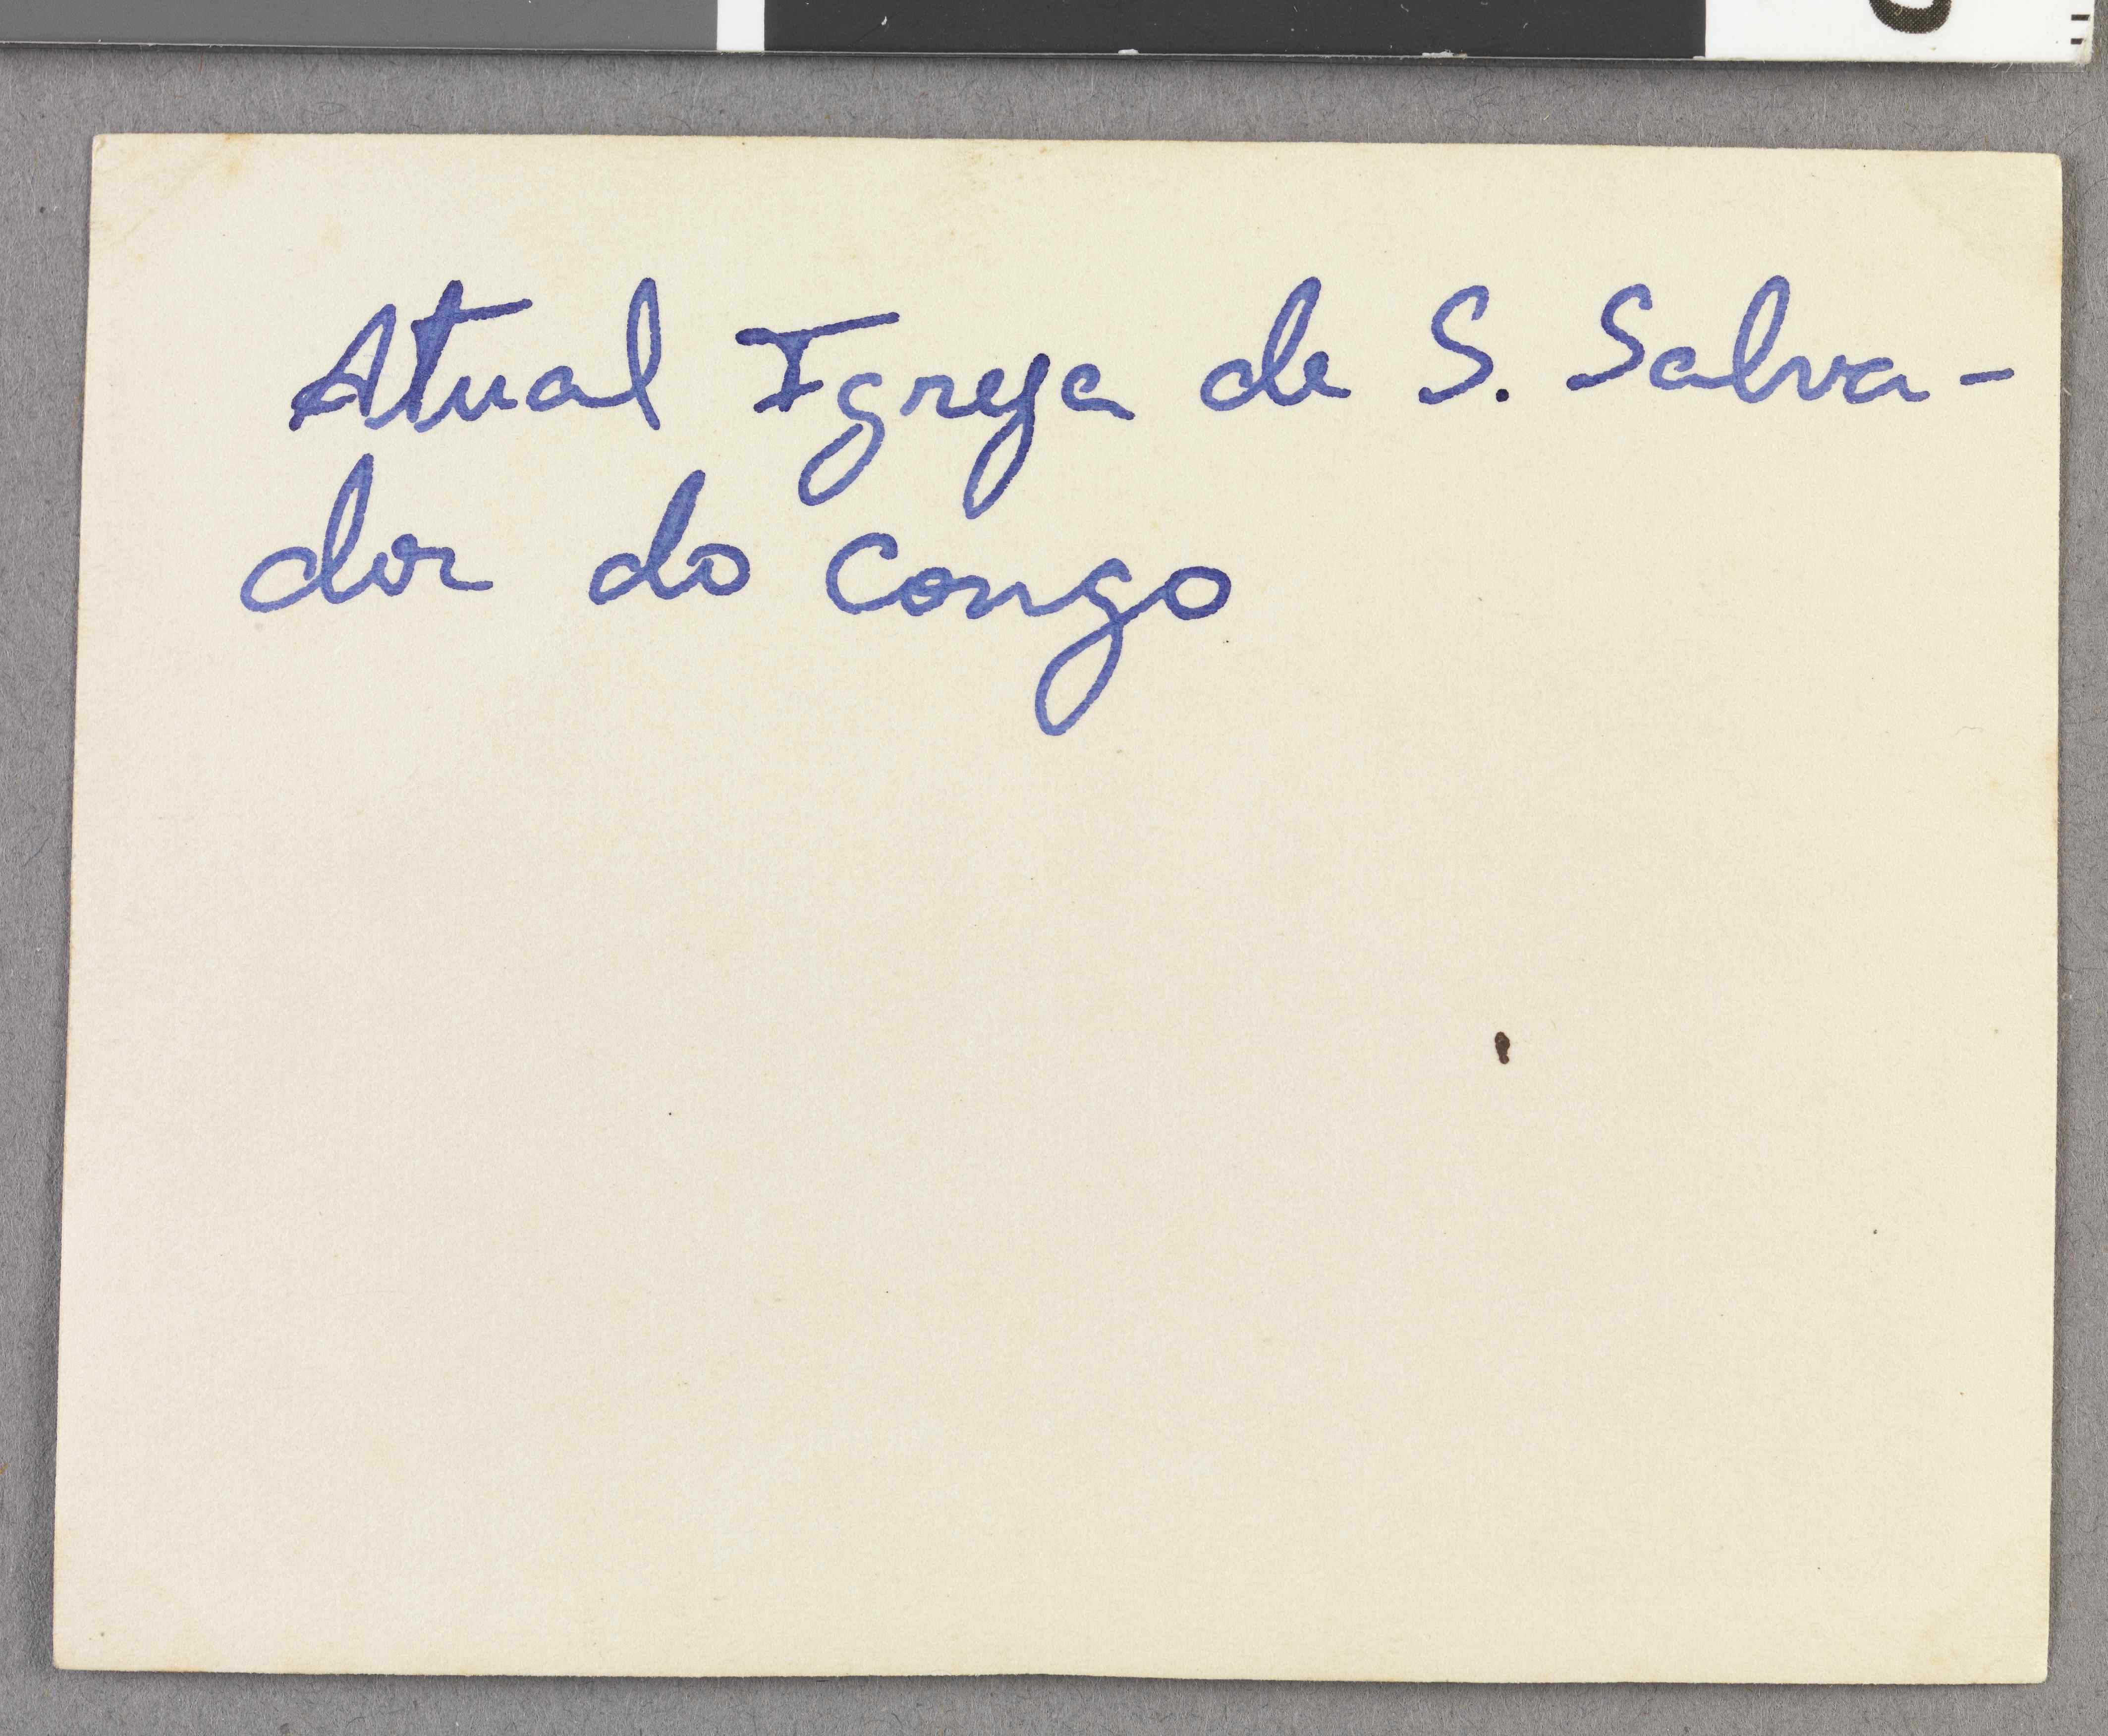 Atual Igreja de S. Salva-
dor do Congo